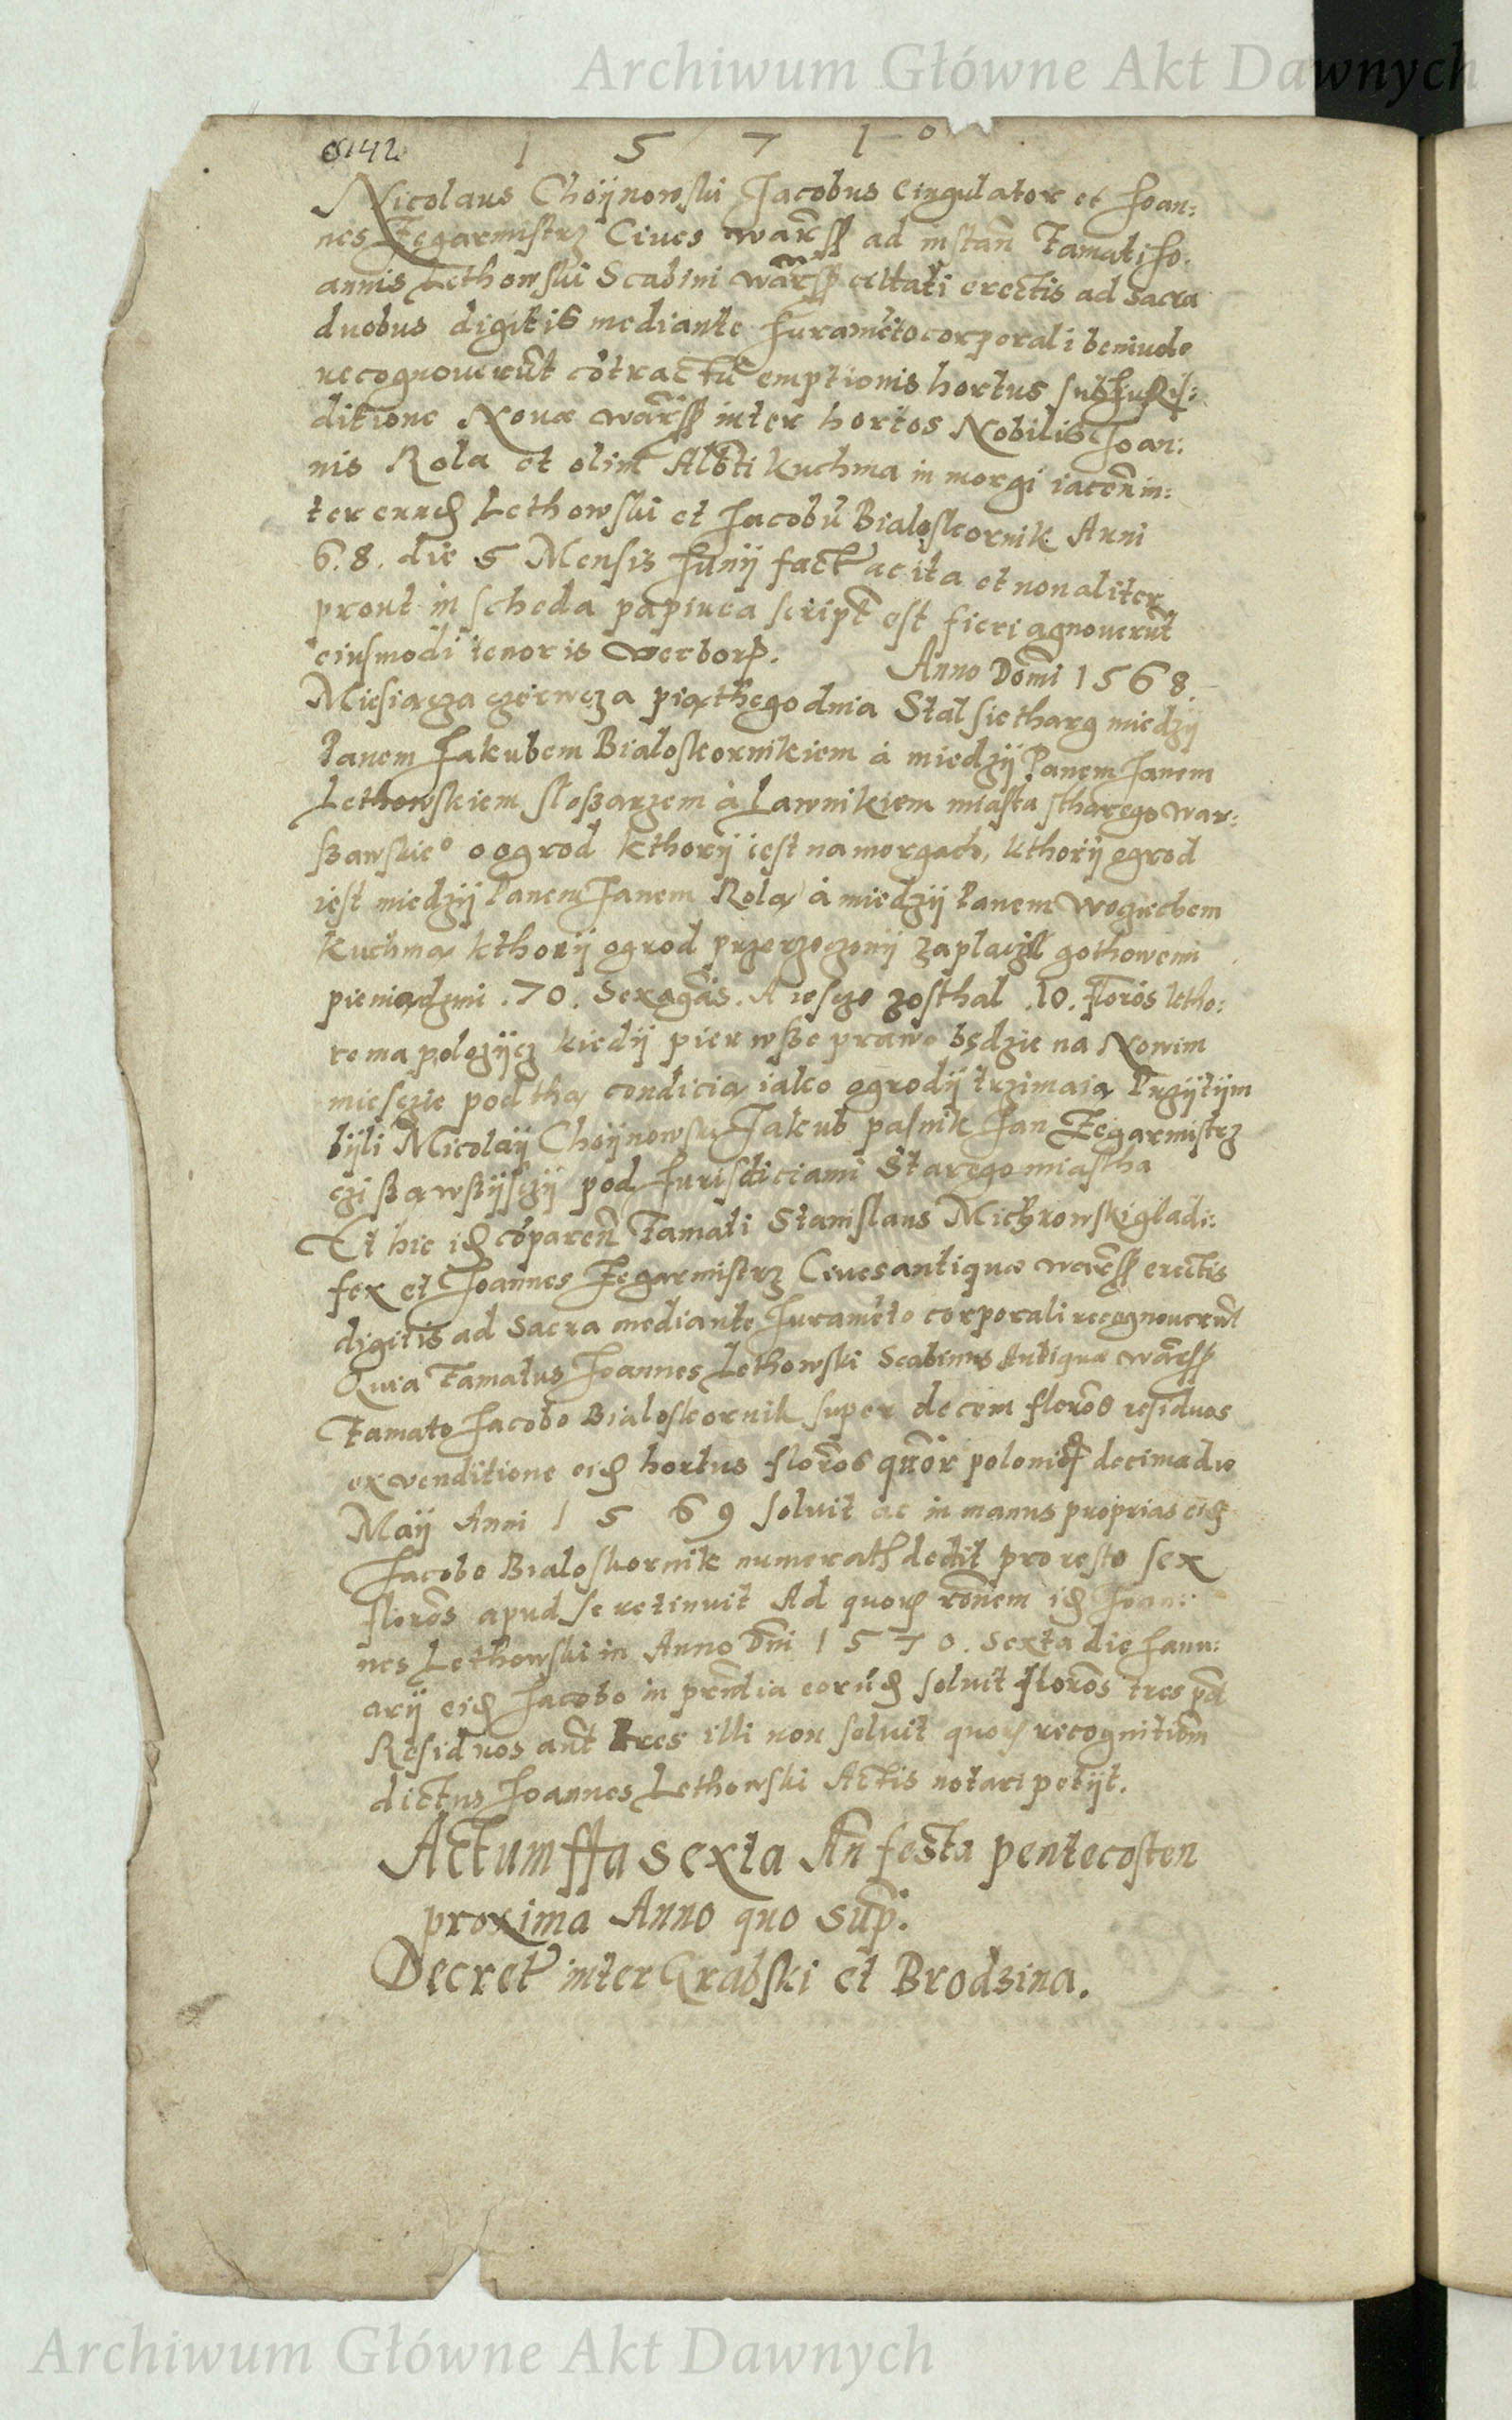 Archiwum Główne Akt Dawnych
142
1 5 7 1º
Nicolaus Choÿnowski Jacobus Cingulator et Joan:
nes Zegarmistrz Ciues warss ad instan famati Jo.
annis Lethowski Scabini warss citati erectis ad sacra
duobus digitis mediante Juramēto corporali beniuole
recognouerūt cōtractū emptionis hortus sub Juris:
ditione Nouæ warss inter hortos Nobilis Joan:
nis Rola et olim Albti kuchma in morgi iacen in:
ter eund Lethowski et Jacobū Bialoskornik Anni
6.8. die 5 Mensis Junÿ fact ac ita et non aliter
prout in scheda papirea script est fieri agnouerūt
eiusmodi tenoris verborp. Anno Domi 1568.
Miesiącza czerwcza piąthego dnia Stal sie tharg miedzÿ
Panem Jakubem Bialoskornikiem á miedzÿ Panem Janem
Lethowskiem sloßarzem á Lawnikiem miasta stharego war:
ßawskieº o ogrod kthorÿ iest na morgach, kthorÿ ogrod
iest miedzÿ Panem Janem Rolą á miedzÿ Panem Wogiechem
Kuchmą kthorÿ ogrod przerzeczonÿ zaplaczil gothowemi
pieniądzmi .70. Sexagēis. A iescze zosthal .10. florōs ktho:
re ma polozÿcz kiedÿ pierwße prawo będzie na Nowim
miesczie pod thą condicią iako ogrodÿ trzimaią Przÿtÿm
bÿli Micolaÿ Choÿnowski Jakub pasnik Jan Zegarmistrz
czi ßą wßÿsczÿ pod Jurisdiciami Starego miastha
Et hic id cōparen famati Stanislaus Michrowski gladi:
fex et Joannes Zegarmistrz Ciues antiquæ warss erectis
digitis ad Sacra mediante Juramēto corporali recognouerūt
Quia famatus Joannes Lethowski Scabinus Antiquæ warss
famato Jacobo Bialoskornik super decem florōs residuos
ex venditione eid hortus florōs quōr polonic decima die
Maÿ Anni 1 5 6 9 soluit ac in manus proprias eid
Jacobo Bialoskornik numerat dedit pro resto sex
florōs apud se retinuit Ad quor rōnem id Joan:
nes Lethowski in Anno Dni 1 5 7 0. Sexta die Janu:
arÿ eid Jacobo in prndia eorūd soluit florōs tres pd
Residuos aut tres illi non soluit quor recognitiōm
dictus Joannes Lethowski Actis notari petÿt.
Actum ffa sexta An festa pentecosten
proxima Anno quo sup.
Decret inter Grabski et Brodzina.
Archiwum Główne Akt Dawnych